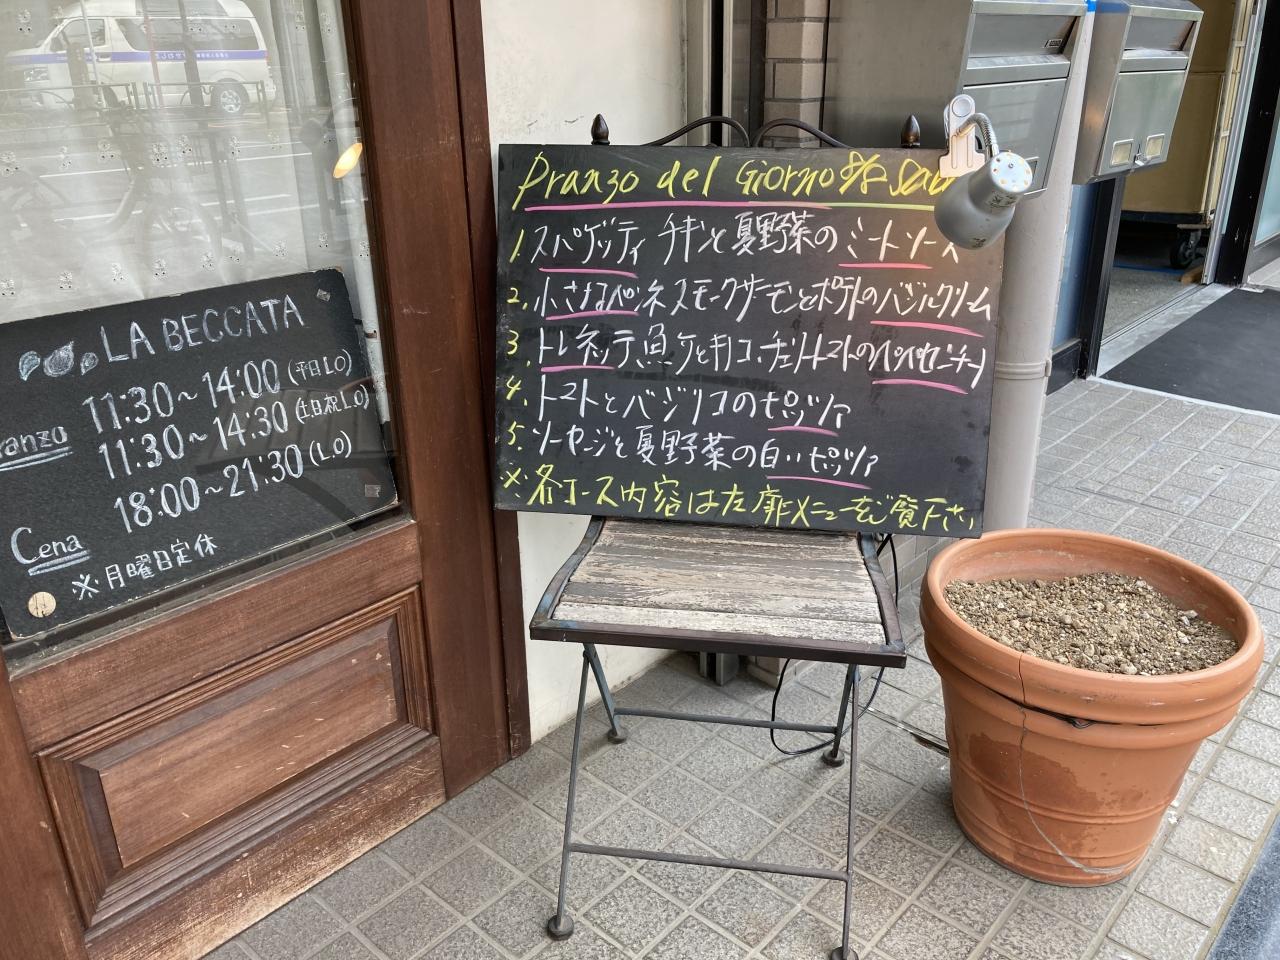 LA BECCATA
11:30~14:00(平日L.O)
11:30~14:30(土日祝L.O)
18:00~21:30(L.O)
Cena
※月曜日定休
Pranzo del Giorno 8/8
1. スパゲッティ チキンと夏野菜のミートソース
2. 小さなペンネ スモークサーモンとポテトのバジルクリーム
3. トレネッテ 魚介とキノコ、チェリートマトのペペロンチーノ
4. トマトとバジリコのピッツァ
5. ソーセージと夏野菜の白いピッツァ
※各コース内容は左扉メニューをご覧下さい